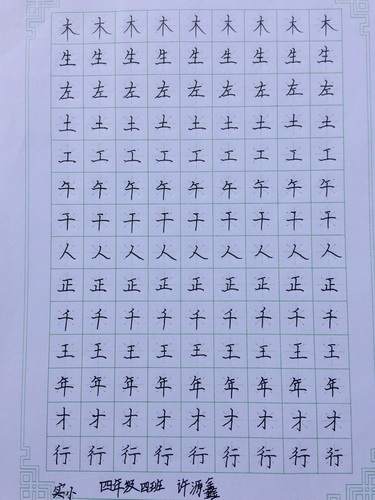 木 木 木 木 木 木 木 木 木
生 生 生 生 生 生 生 生 生
左 左 左 左 左 左 左 左 左
土 土 土 土 土 土 土 土 土
工 工 工 工 工 工 工 工 工
午 午 午 午 午 午 午 午 午
干 干 干 干 干 干 干 干 干
人 人 人 人 人 人 人 人 人
正 正 正 正 正 正 正 正 正
千 千 千 千 千 千 千 千 千
王 王 王 王 王 王 王 王 王
年 年 年 年 年 年 年 年 年
才 才 才 才 才 才 才 才 才
行 行 行 行 行 行 行 行 行
实小 四年级四班 许